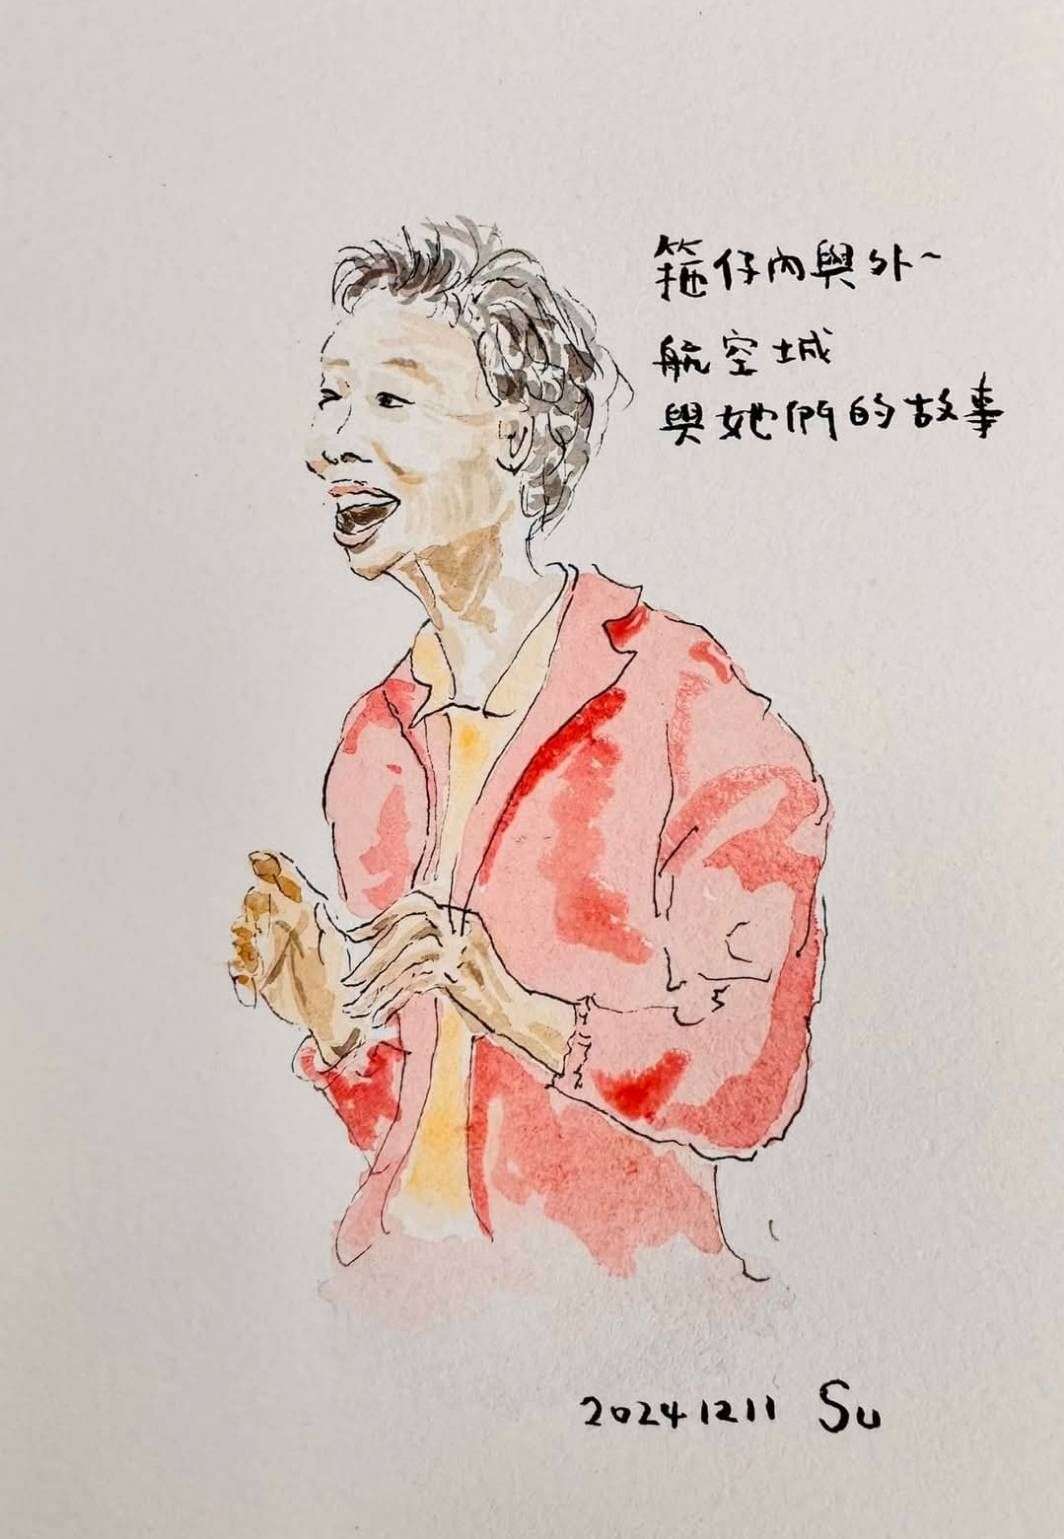 箍仔內與外~
航空城
與她們的故事
20241211 Su